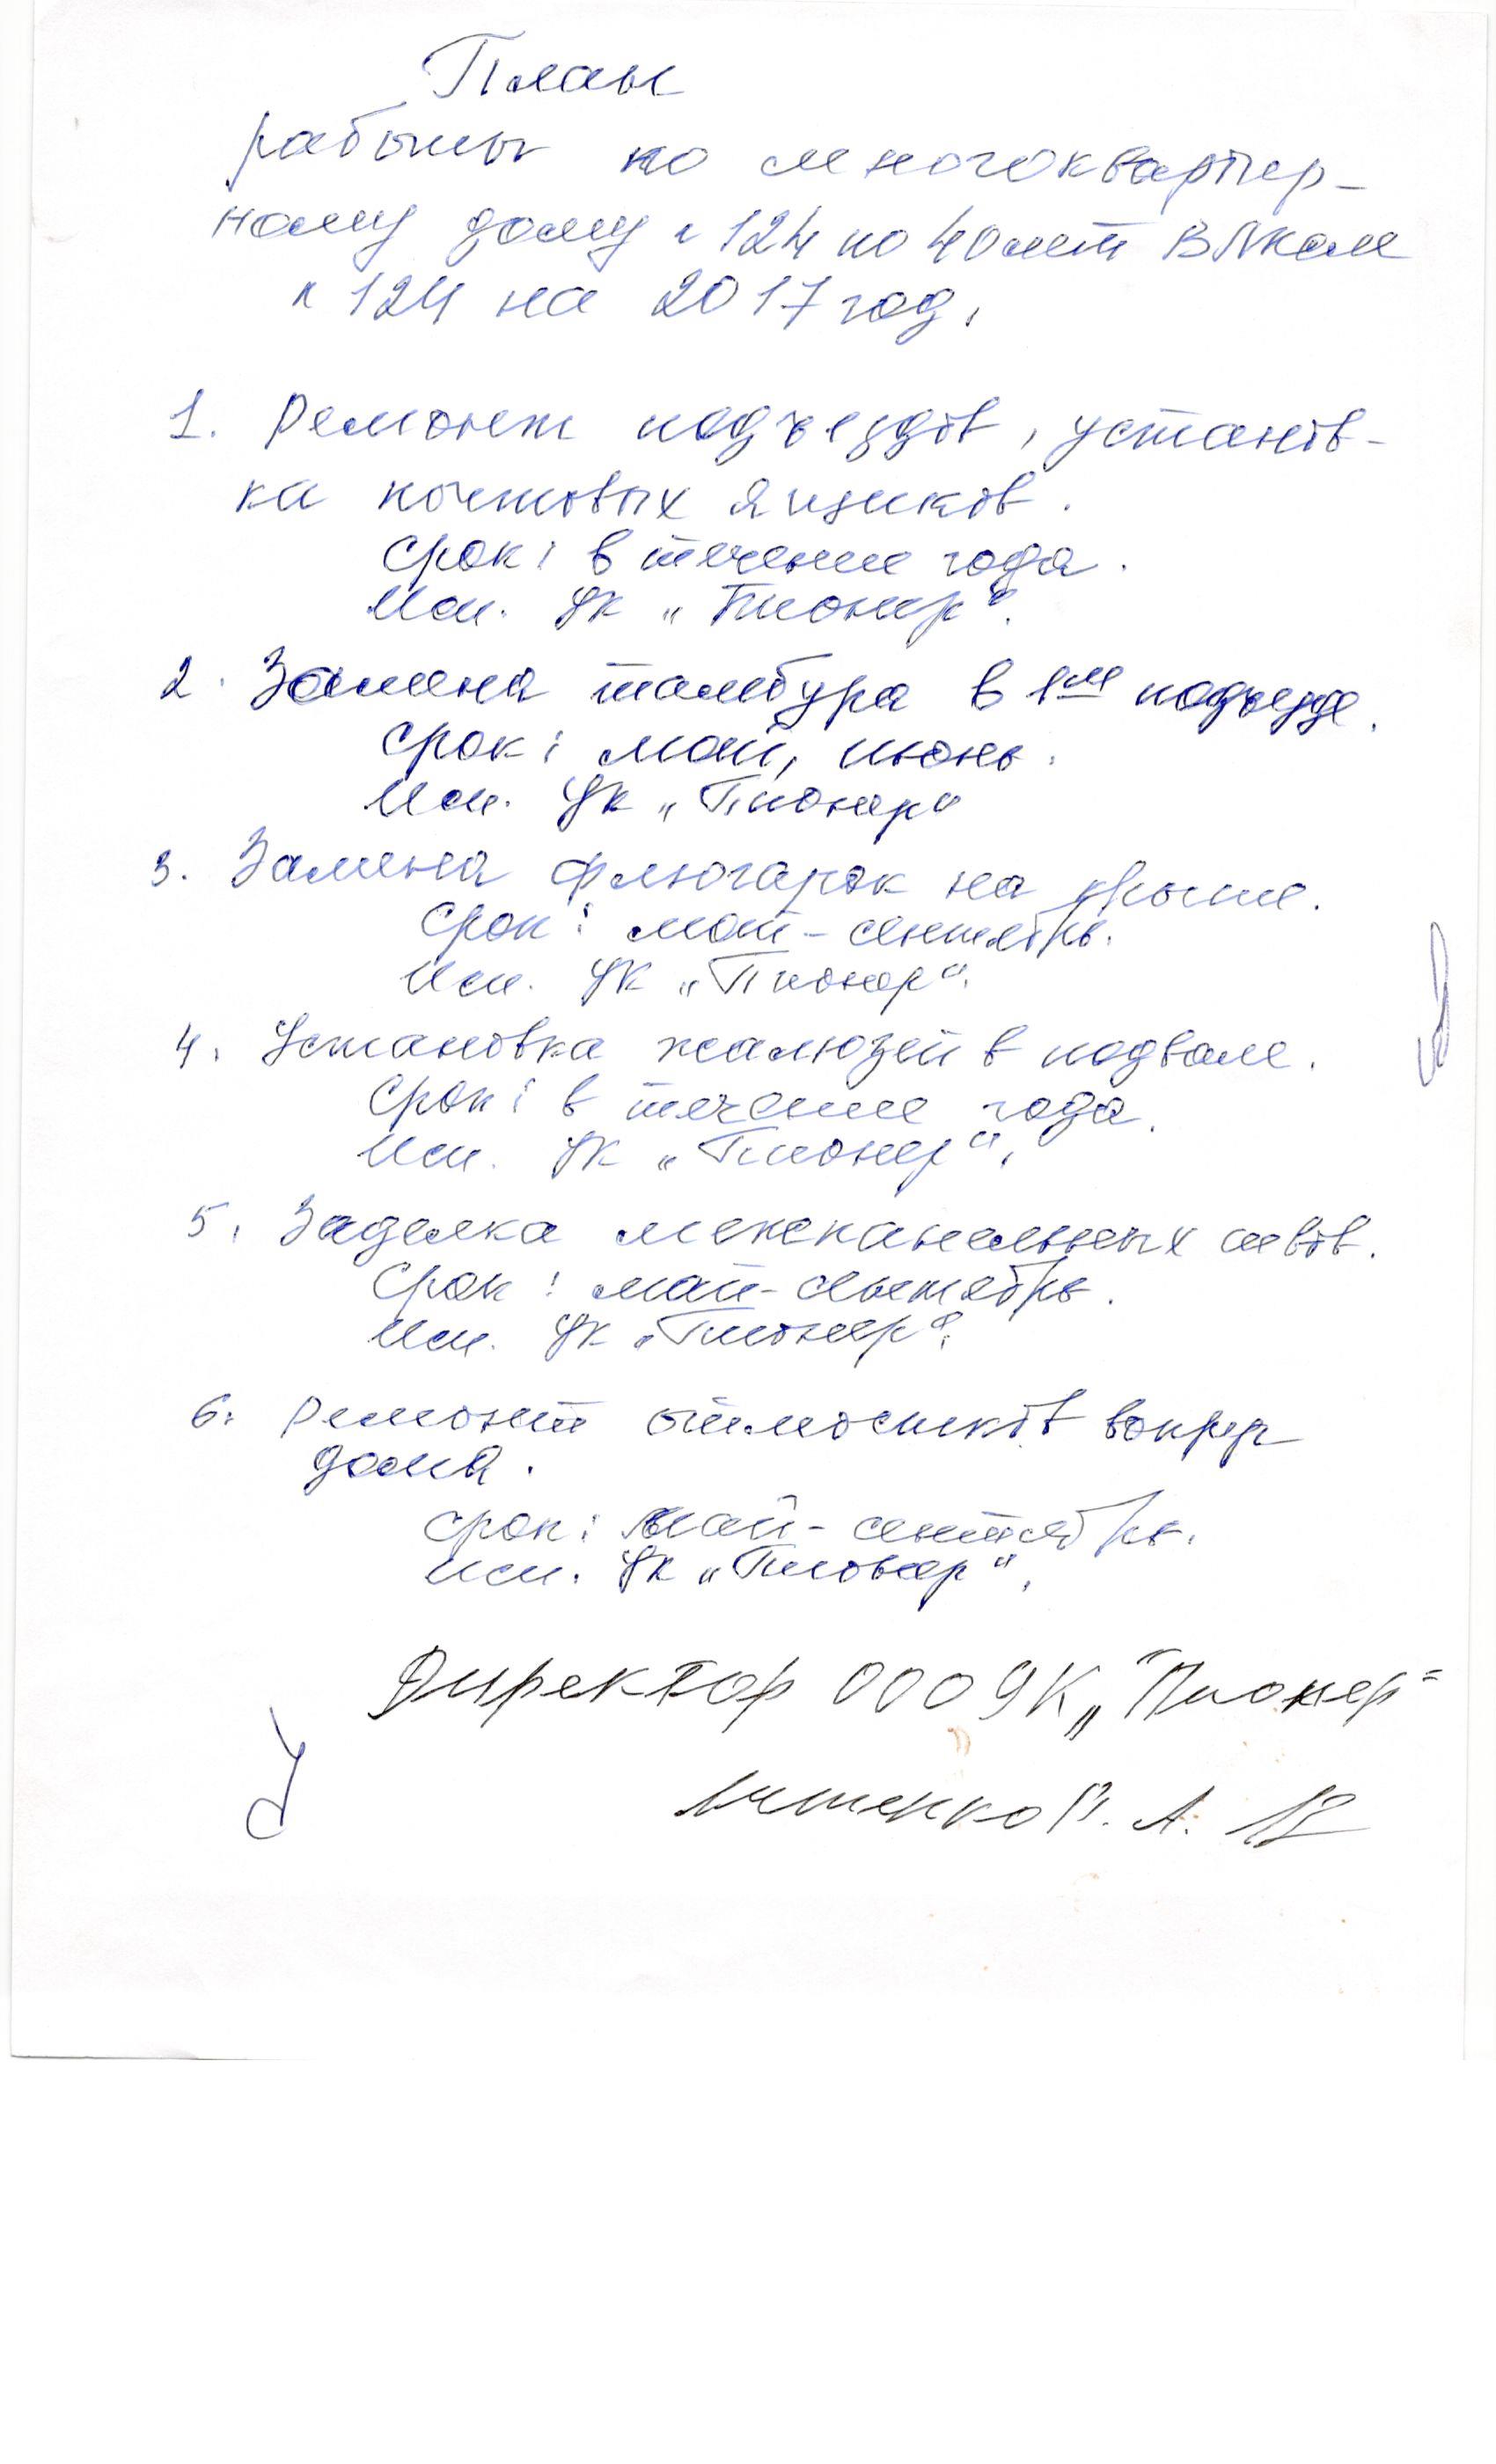 План
работы по многоквартир-
ному дому № 124 по 40 лет ВЛКСМ
№ 124 на 2017 год.
1. Ремонт подъездов, установ-
ка почтовых ящиков.
Срок: в течение года.
Исп. УК „Пионер“.
2. Замена тамбура в 1ом подъезде.
Срок: май, июнь.
Исп. УК „Пионер“
3. Замена флюгарок на крыше.
Срок: май - сентябрь.
Исп. УК „Пионер“.
4. Установка жалюзей в подвале.
Срок: в течение года.
Исп. УК „Пионер“.
5. Заделка межпанельных швов.
Срок: май - сентябрь.
Исп. УК „Пионер“.
6. Ремонт отмостков вокруг
дома.
Срок: май - сентябрь.
Исп. УК „Пионер“.
Директор ООО УК „Пионер“
А.